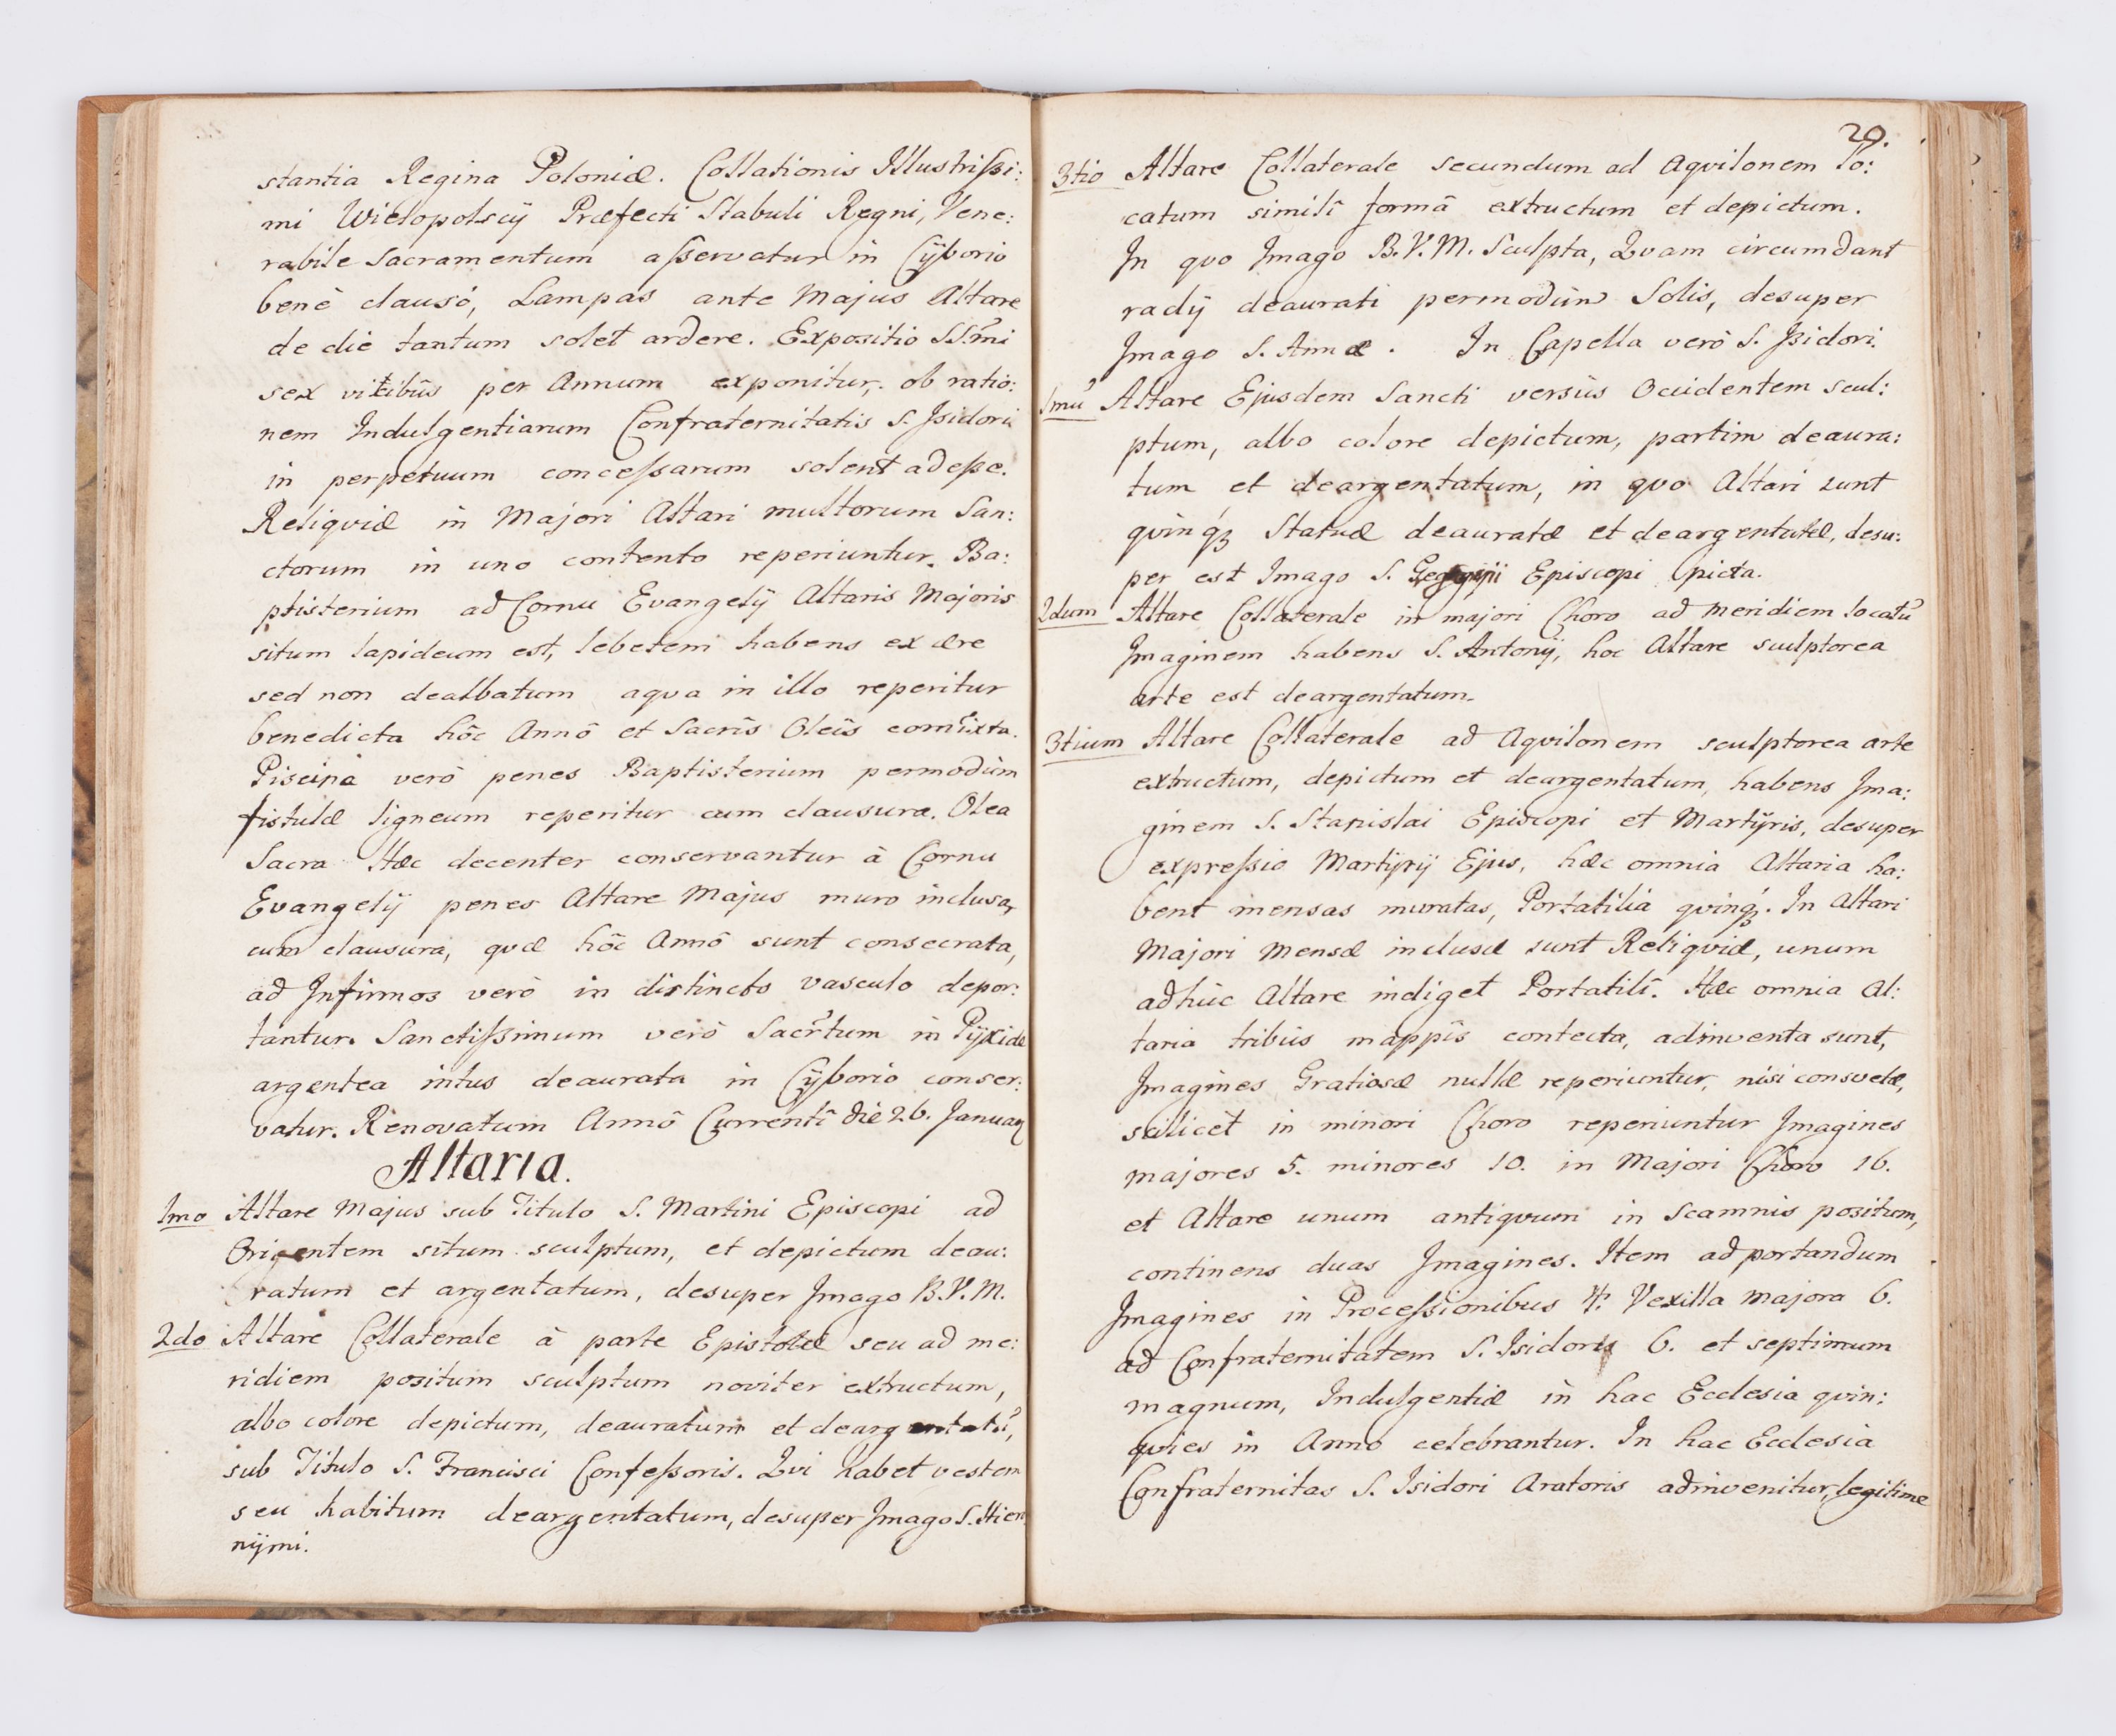 stantia Regina Poloniæ. Collationis Illustrissi:
mi Wielopolscÿ Præfecti Stabuli Regni, Vene:
rabile Sacramentum asservatur in Cÿborio
benè clausô, Lampas ante Majus Altare
de die tantum solet ardere. Expositio SSm̃i
sex vicibûs per Annum exponitur, ob ratio:
nem Indulgentiarum Confraternitatis S. Isidori
in perpetuum concessarum solent adesse.
Reliqviæ in Majori Altari multorum San:
ctorum in uno contento reperiuntur. Ba:
ptisterium ad Cornu Evangelÿ Altaris Majoris
situm lapideum est, lebetem habens ex ære
sed non dealbatum aqva in illo reperitur
benedicta hôc Annô et Sacrîs Oleîs com̃ixta.
Piscina verò penes Baptisterium permodùm
fistulæ ligneum reperitur cum clausura. Olea
Sacra Hæc decenter conservantur à Cornu
Evangelÿ penes Altare Majus muro inclusa,
cum clausura, qvæ hôc Annô sunt consecrata,
ad Infirmos verò in distincto vasculo depor:
tantur. Sanctissimum verò Sacr̃tum in Pÿxide
argentea intus deaurata in Cÿborio conser:
vatur. Renovatum Annô Currentî die 26. January
Altaria.
1mo Altare Majus sub Titulo S. Martini Episcopi ad
Orientem situm sculptum, et depictum deau:
ratum et argentatum, desuper Imago B.V.M.
2do Altare Collaterale à parte Epistolæ seu ad me:
ridiem positum sculptum noviter extructum,
albo colore depictum, deauratum et deargentatũ,
sub Titulo S. Francisci Confessoris. Qvi habet vestem
seu habitum deargentatum, desuper Imago S. Hiero
nÿmi.
29.
3tio Altare Collaterale secundum ad Aqvilonem lo:
catum similî formâ extructum et depictum.
In qvo Imago B.V.M. Sculpta, Qvam circumdant
radÿ deaurati permodùm Solis, desuper
Imago S. Annæ. In Capella verò S. Isidori
1mũ Altare Ejusdem Sancti versùs Occidentem scul:
ptum, albo colore depictum, partim deaura:
tum et deargentatum, in qvo Altari sunt
qvinq́ꝫ Statuæ deauratæ et deargentatæ, desu:
per est Imago S. Episcopi picta.
2dum Altare Collaterale in majori Choro ad meridiem locatũ
Imaginem habens S. Antonÿ, hoc Altare sculptorea
arte est deargentatum.
3tium Altare Collaterale ad Aqvilonem sculptorea arte
extructum, depictum et deargentatum, habens Ima:
ginem S. Stanislai Episcopi et Martÿris, desuper
expressio Martÿrÿ Ejus, hæc omnia Altaria ha:
bent mensas muratas, Portatilia qvinq́ꝫ. In Altari
Majori Mensæ inclusæ sunt Reliqviæ, unum
adhùc Altare indiget Portatilî. Hæc omnia Al:
taria tribùs mappîs contecta, adinventa sunt,
Imagines Gratiosæ nullæ reperiuntur, nisi consvetæ,
scilicèt in minori Choro reperiuntur Imagines
majores 5. minores 10. in Majori Choro 16.
et Altare unum antiqvum in Scamnis positum,
continens duas Imagines. Item ad portandum
Imagines in Processionibus 4. Vexilla majora 6.
ad Confraternitatem S. Isidoris 6. et septimum
magnum, Indulgentiæ in hac Ecclesia qvin:
qvies in Anno celebrantur. In hac Ecclesia
Confraternitas S. Isidori Aratoris adinvenitur, legitime